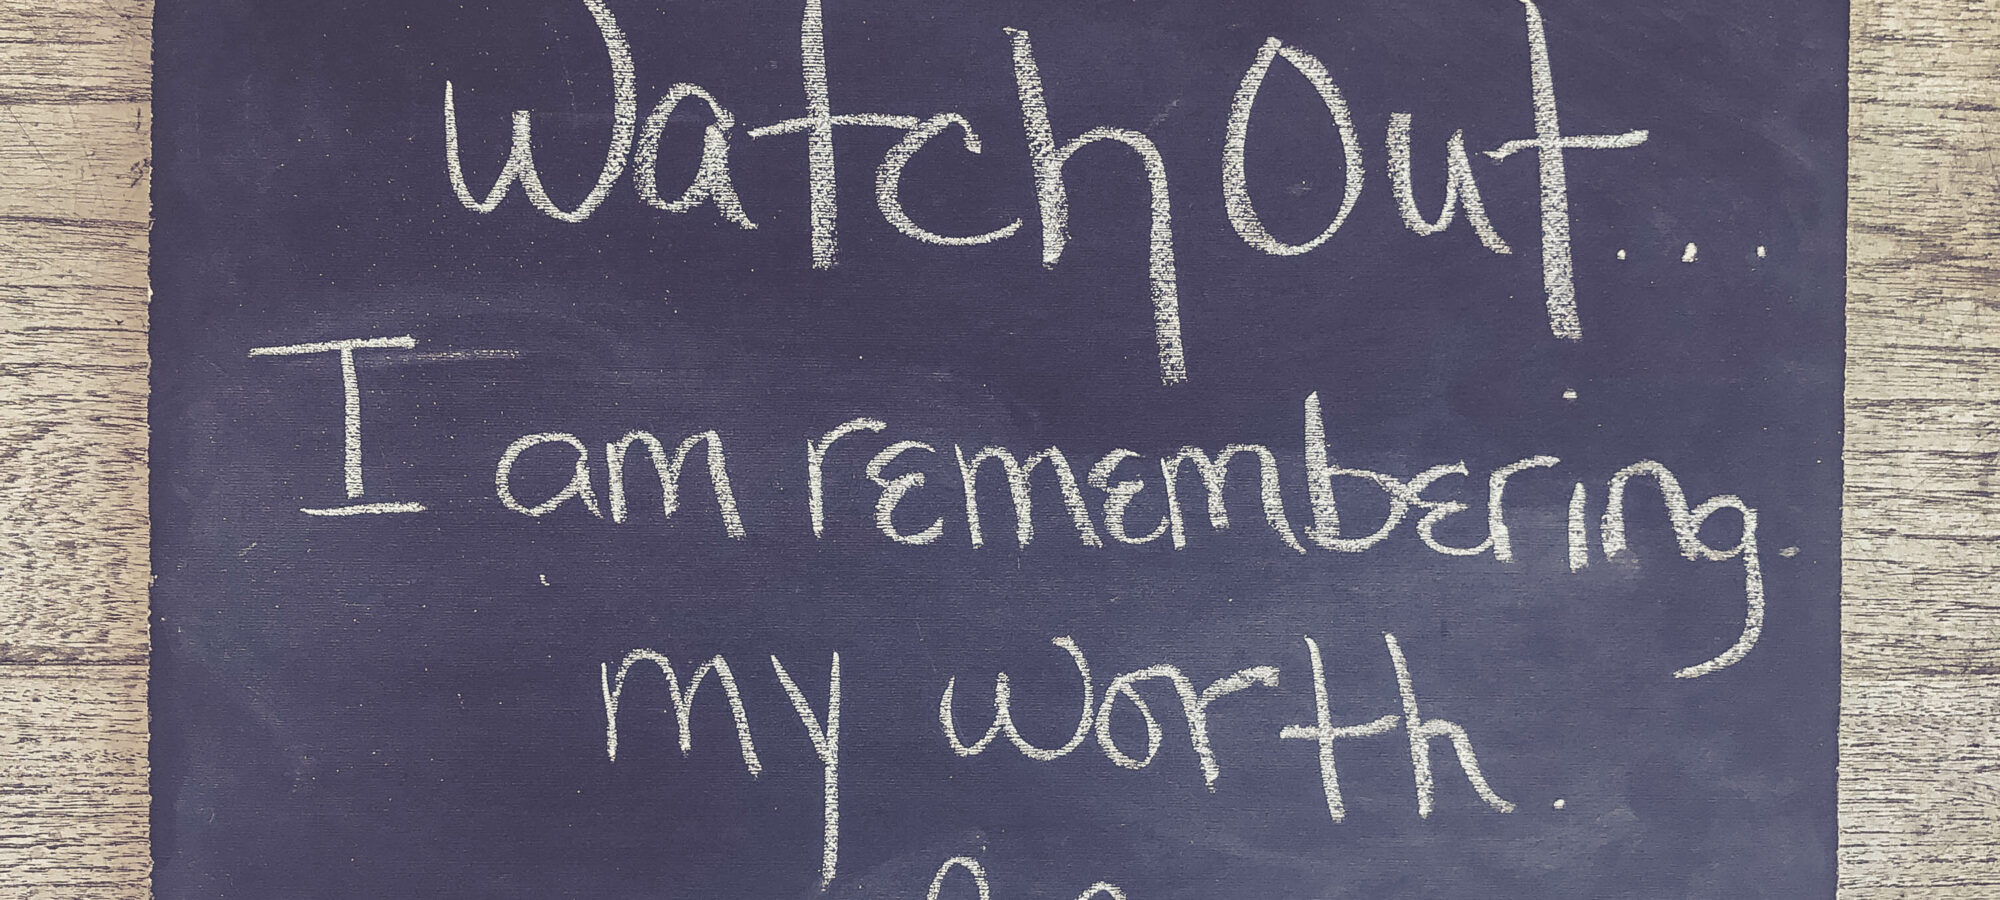 Watch Out...
I am remembering
my worth.